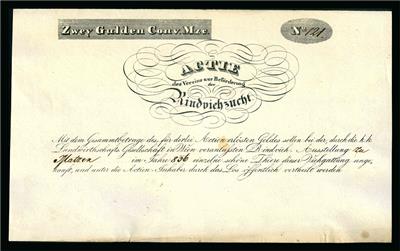 Zwey Gulden Conv. Mze.
No. 121
ACTIE
des Vereins zur Beförderung
der
Rindviehzucht
Mit dem Gesammtbetrage des, für derlei Actien erlösten Geldes sollen bei der, durch die k. k.
Landwirthschafts Gesellschaft in Wien veranlassten Rindvieh-Ausstellung zu
Matzen im Jahre 836 einzelne schöne Thiere dieser Viehgattung ange-
kauft, und unter die Actien-Inhaber durch das Los öffentlich vertheilt werden